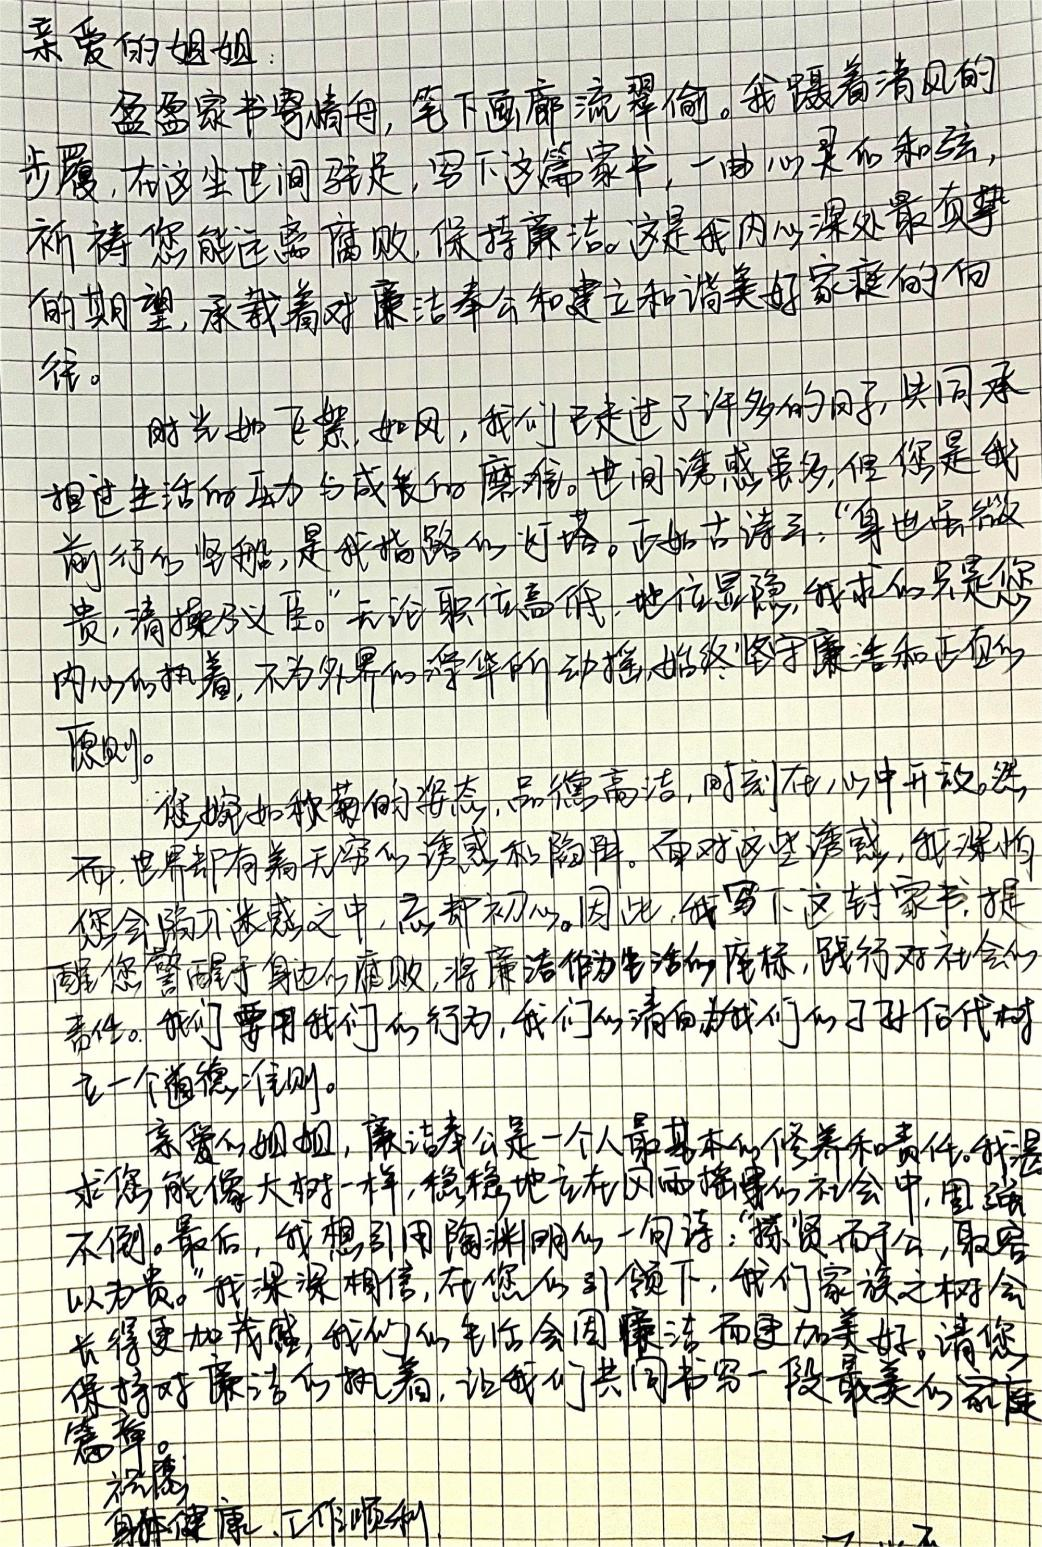 亲爱的姐姐：
盈盈家书寄情舟，笔下画廊流翠偷。我蹑着清风的
步履，在这尘世间驻足，写下这篇家书，一曲心灵的和弦，
祈祷您能远离腐败，保持廉洁。这是我内心深处最真挚
的期望，承载着对廉洁奉公和建立和谐美好家庭的向
往。
时光如飞絮，如风，我们已走过了许多的日子，共同承
担过生活的压力与成长的磨难。世间诱惑虽多，但您是我
前行的坚船，是我指路的灯塔。正如古诗云：“身也虽微
贵，清操乃义臣。”无论职位高低，地位显隐，我求的只是您
内心的执着，不为外界的浮华所动摇，始终坚守廉洁和正直的
原则。
您婉如秋菊的姿态，品德高洁，时刻在心中开放。然
而，世界却有着无穷的诱惑和陷阱。面对这些诱惑，我深怕
您会陷入迷惑之中，忘却初心。因此，我写下这封家书，提
醒您警醒于身边的腐败，将廉洁作为生活的座标，践行对社会的
责任。我们要用我们的行为，我们的清白为我们的子孙后代树
立一个道德准则。
亲爱的姐姐，廉洁奉公是一个人最基本的修养和责任。我恳
求您能像大树一样，稳稳地立在风雨摇曳的社会中，
不倒。最后，我想引用陶渊明的一句诗：“择贤而予公，取容
以为贵。”我深深相信，在您的引领下，我们家族之树会
长得更加茂盛，我们的生活会因廉洁而更加美好。请您
保持对廉洁的执着，让我们共同书写一段最美的家庭
篇章。
祝愿
身体健康、工作顺利